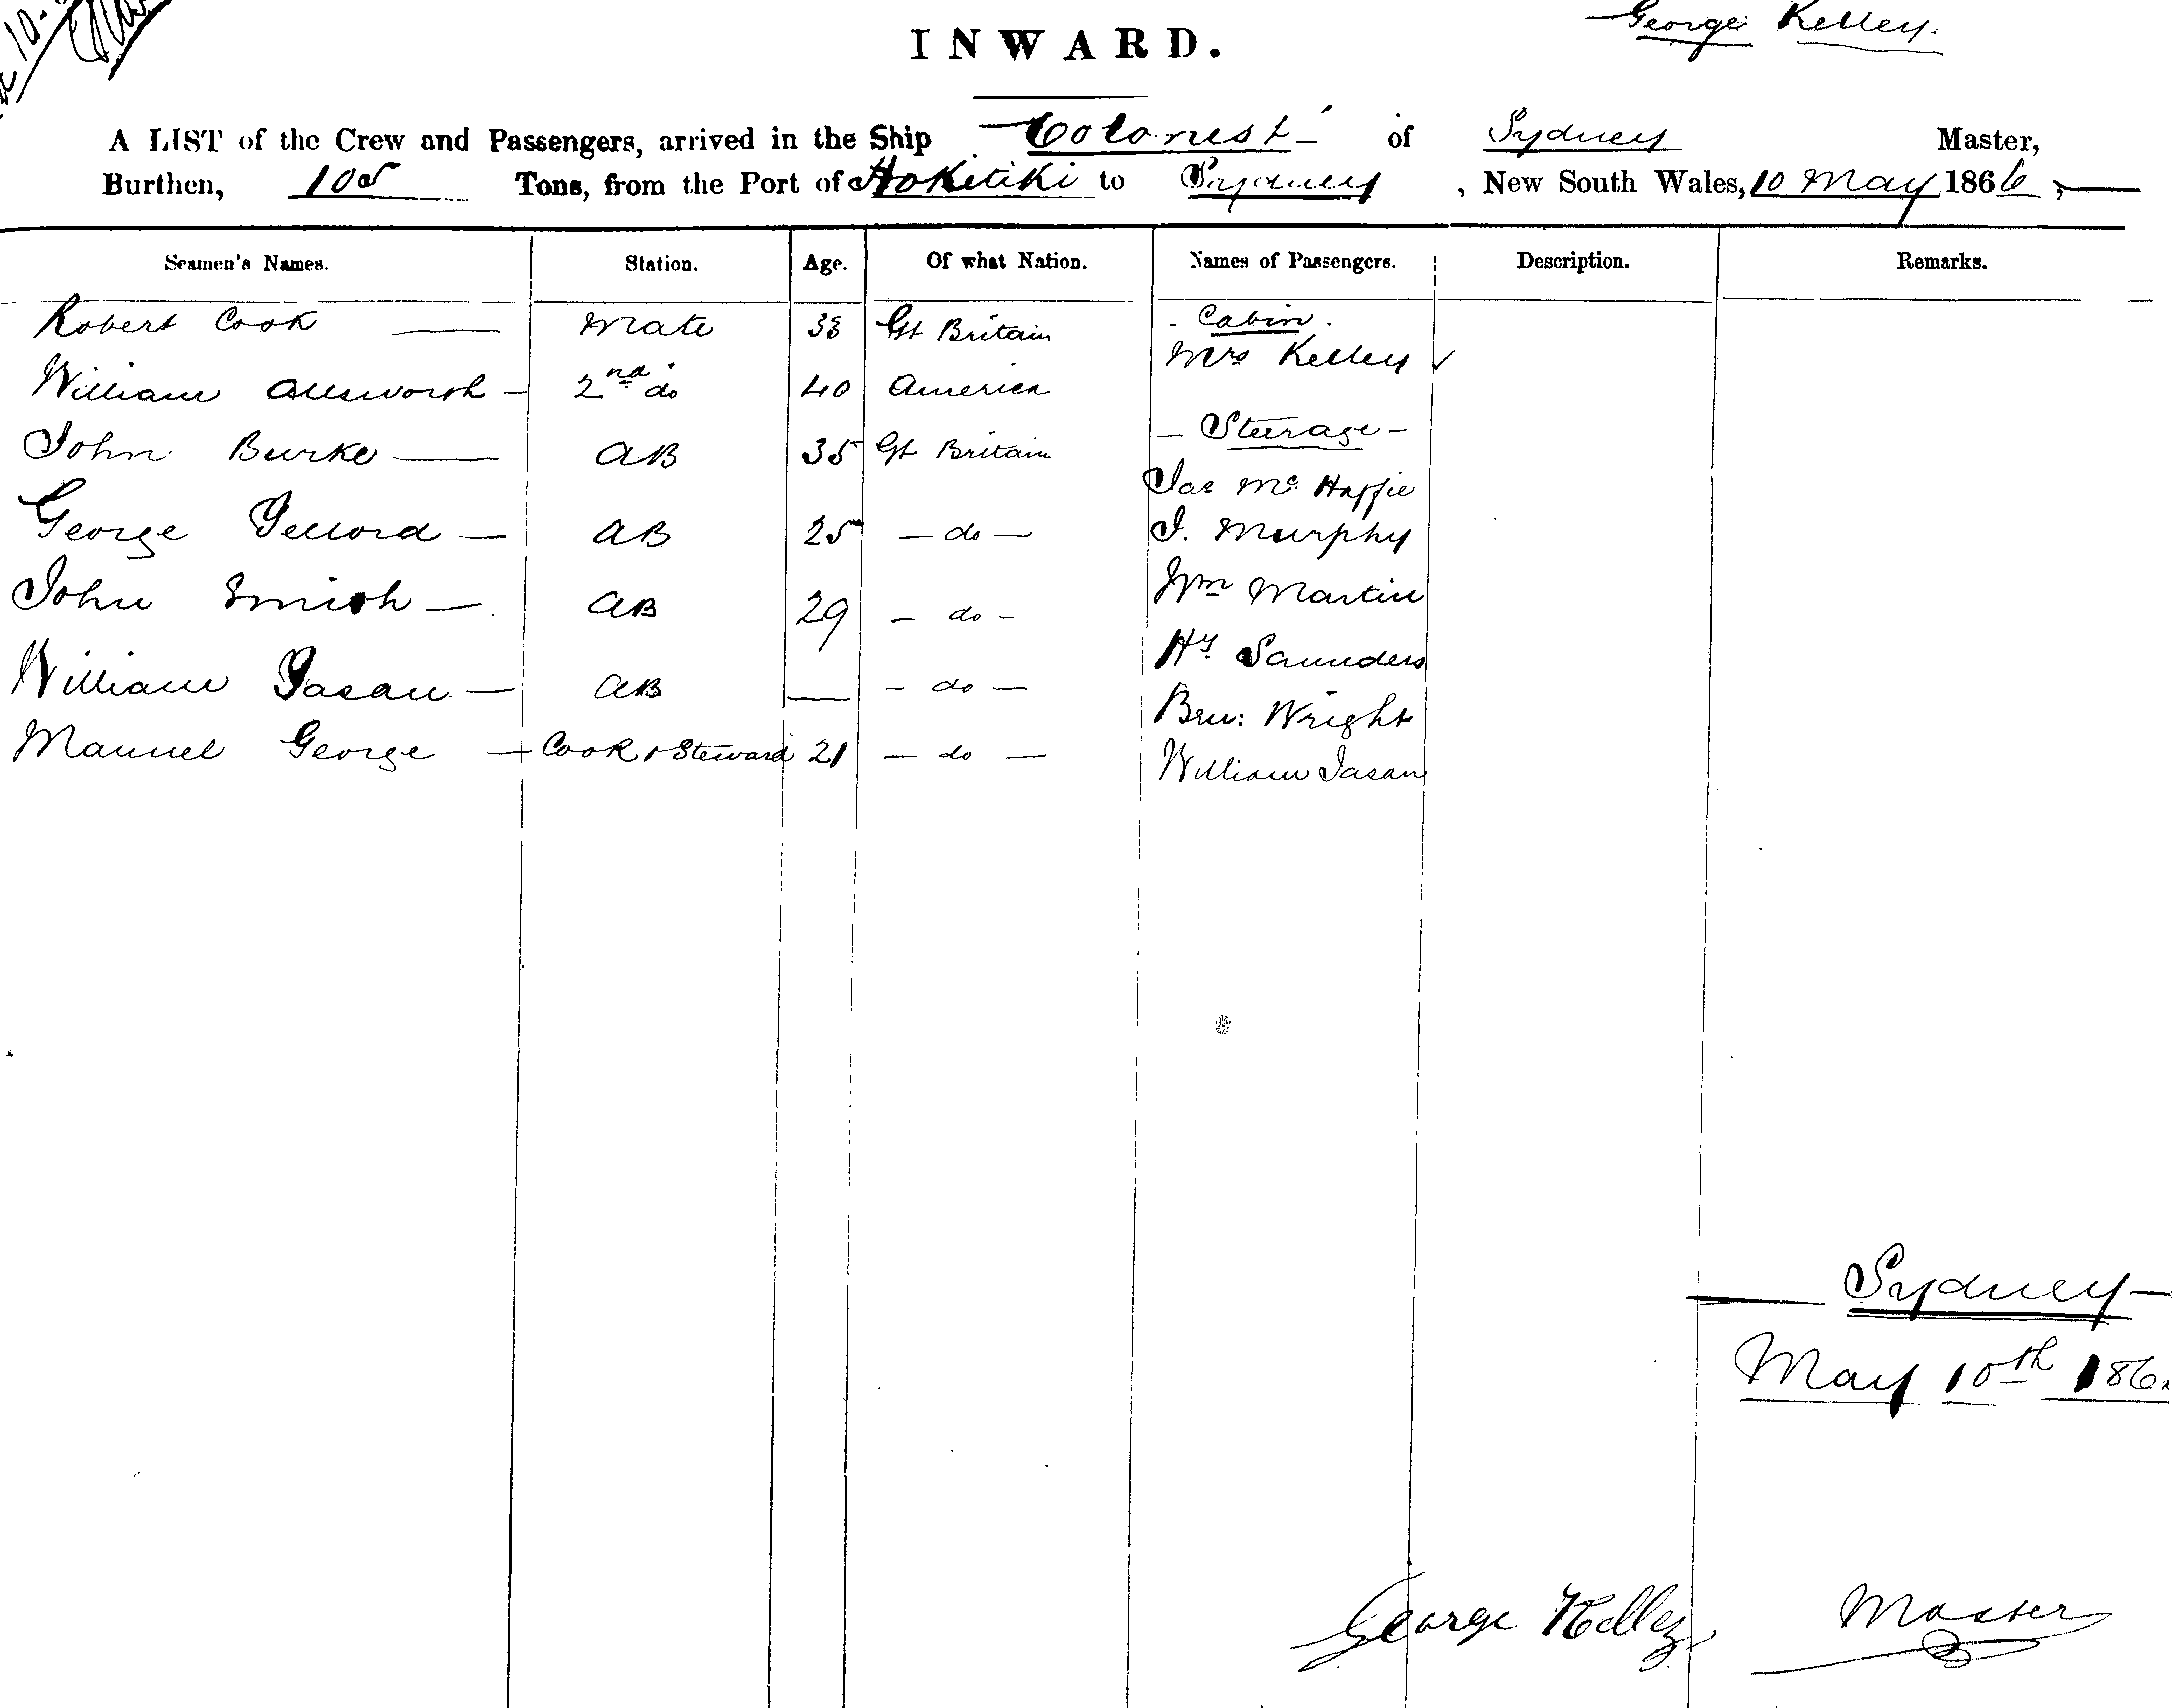 10
INWARD.
George Kelley.
A LIST of the Crew and Passengers, arrived in the Ship Colonist of Sydney Master,
Burthen, 105 Tons, from the Port of Hokitiki to Sydney, New South Wales, 10 May 1866,
Seamen's Names. Station. Age. Of what Nation. Names of Passengers. Description. Remarks.
Robert Cook — Mate 33 Gt Britain - Cabin.
Mrs Kelley ✓
William Allsworth - 2nd do 40 America
- Steerage -
John Burke — AB 35 Gt Britain
Jas McHaffie
George Gellord — AB 25 — do — J. Murphy
John Smith — AB 29 - do - Wm Martin
Hy Saunders
William Jasan — AB — - do —
Ben: Wright
Manuel George — Cook & Steward 21 — do —
William Jasan
— Sydney —
May 10th 186
George Kelley Master